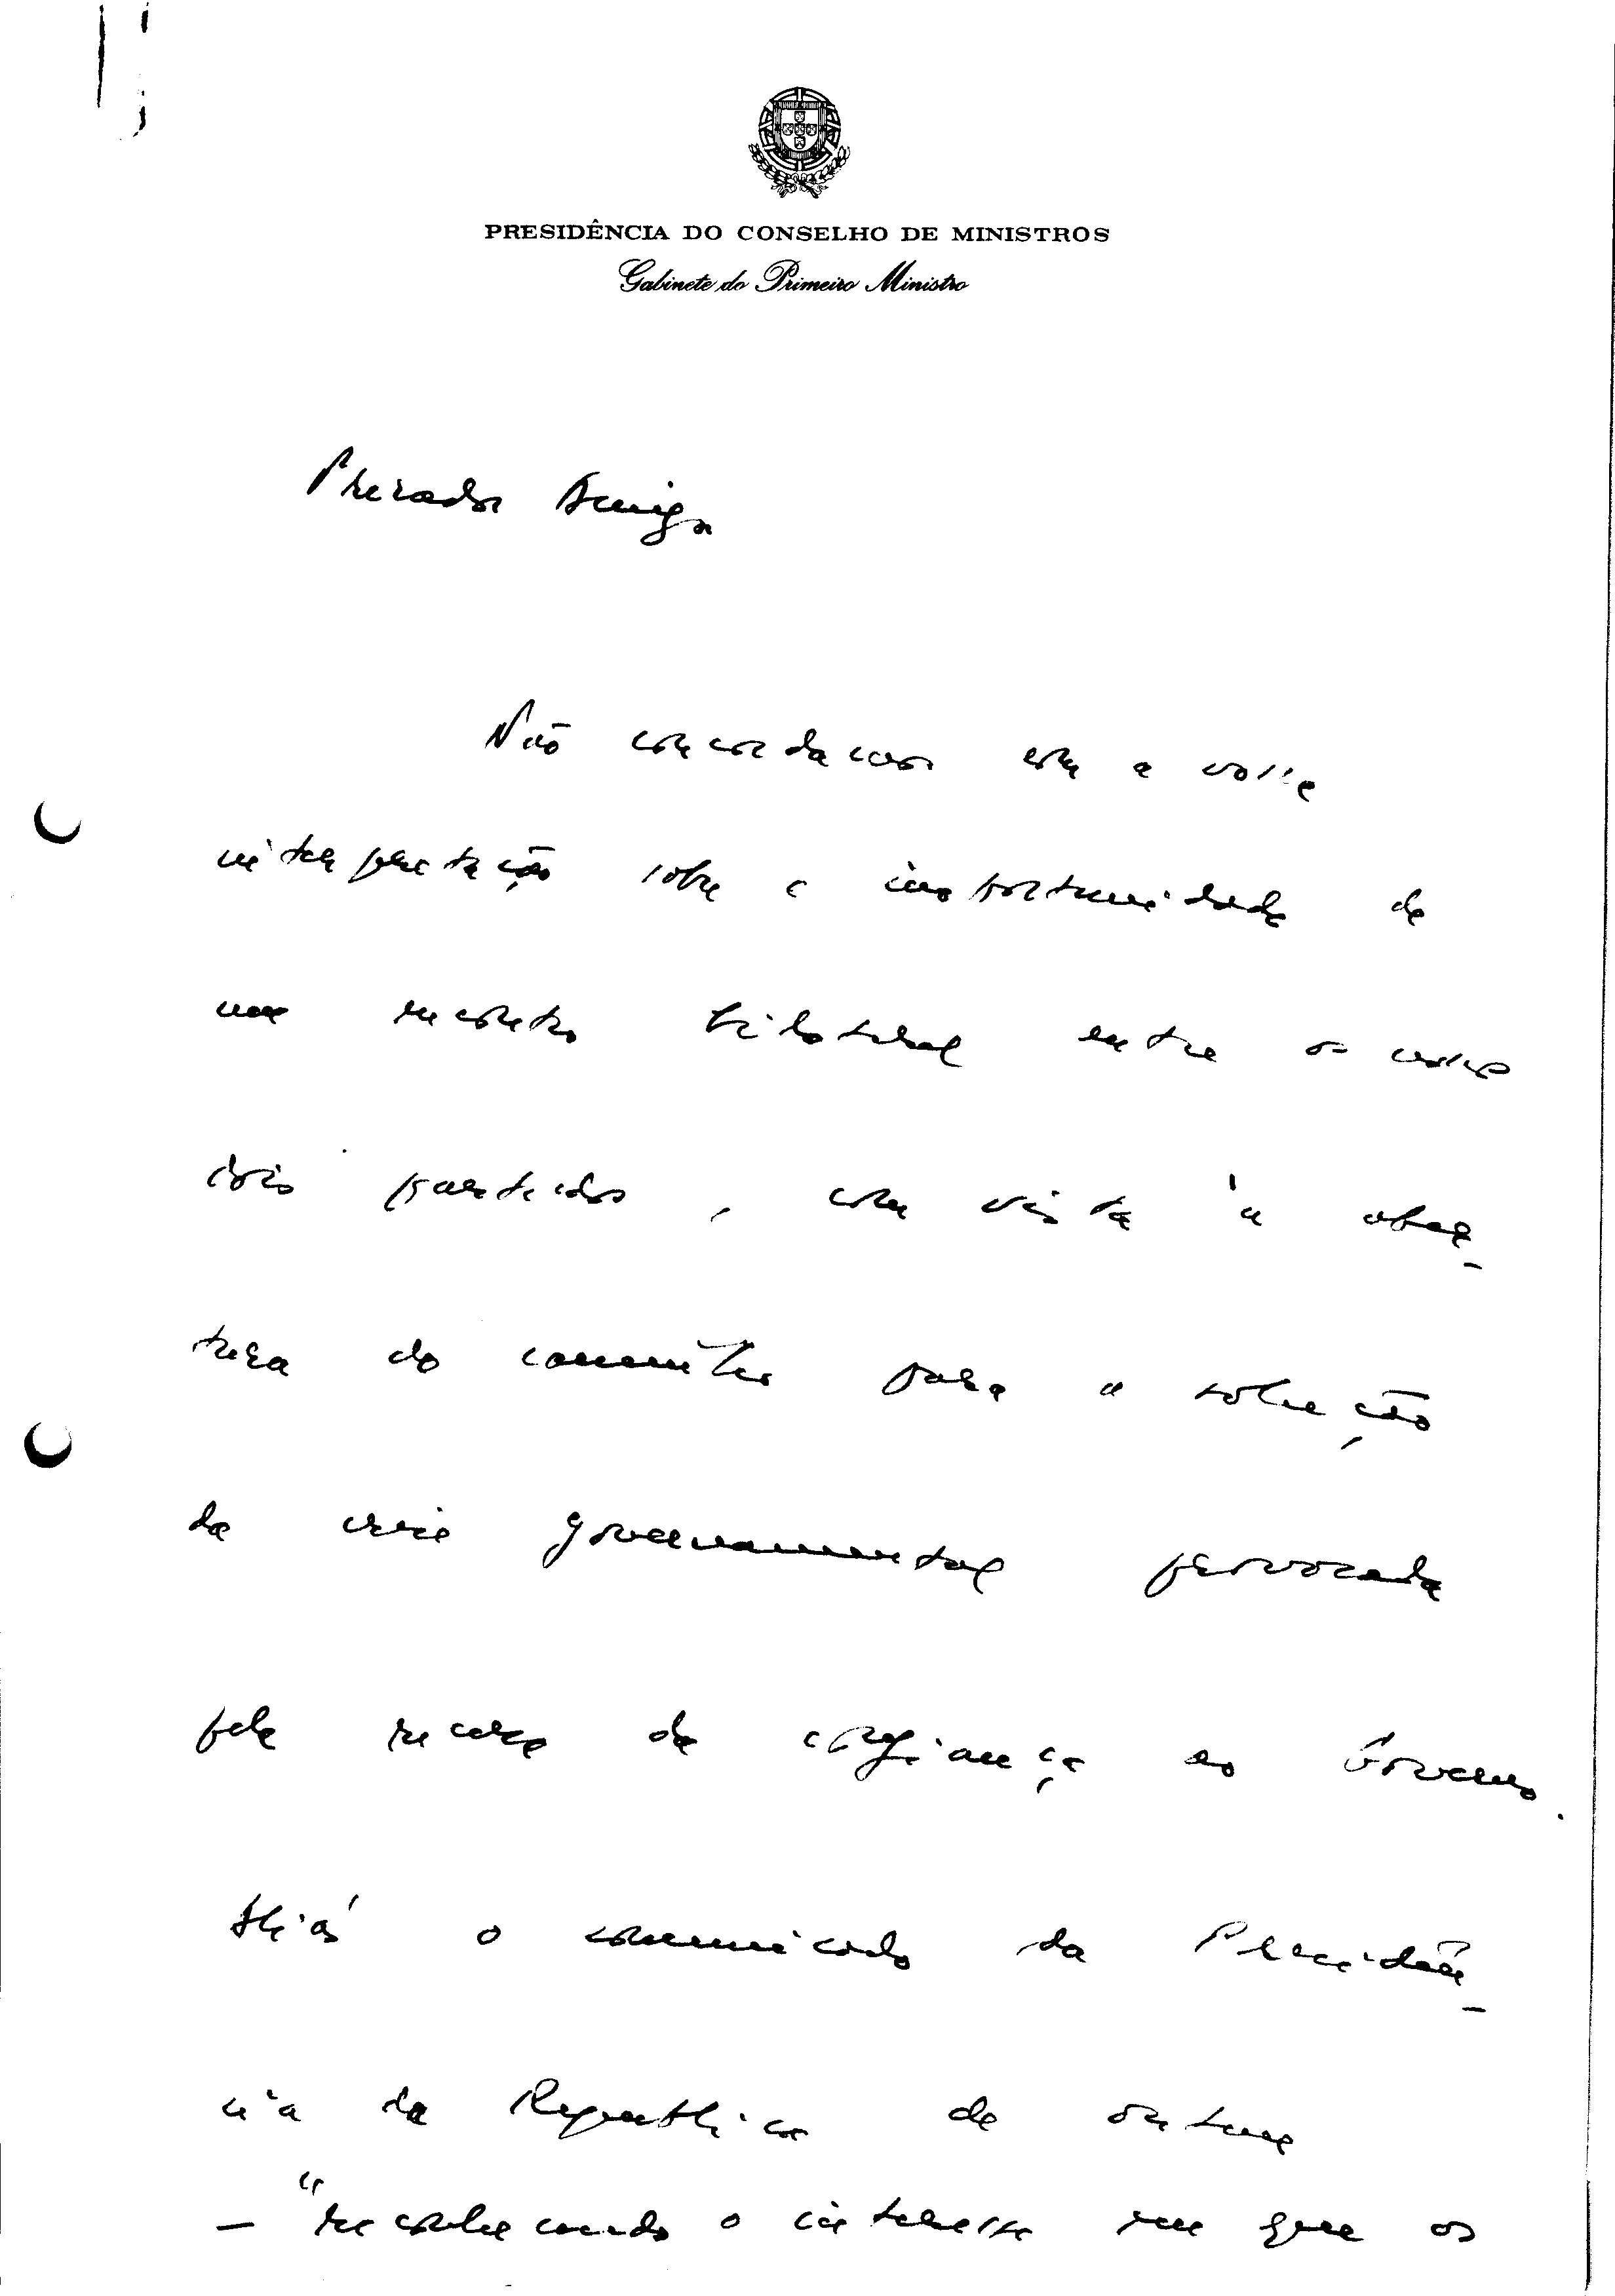 PRESIDÊNCIA DO CONSELHO DE MINISTROS
Gabinete do Primeiro Ministro
Prezado Amigo
Não concordamos com a vossa
interpretação sobre a inoportunidade de
um encontro bilateral entre os nossos
dois partidos, com vista à aber-
tura do caminho para a solução
da crise governamental provocada
pela recusa de confiança ao Governo.
Aliás o comunicado da Presidên-
cia da República de ontem
— "reconhecendo o interesse em que os